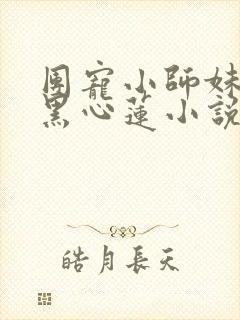 團寵小師妹
黑心蓮小說
皓月長天